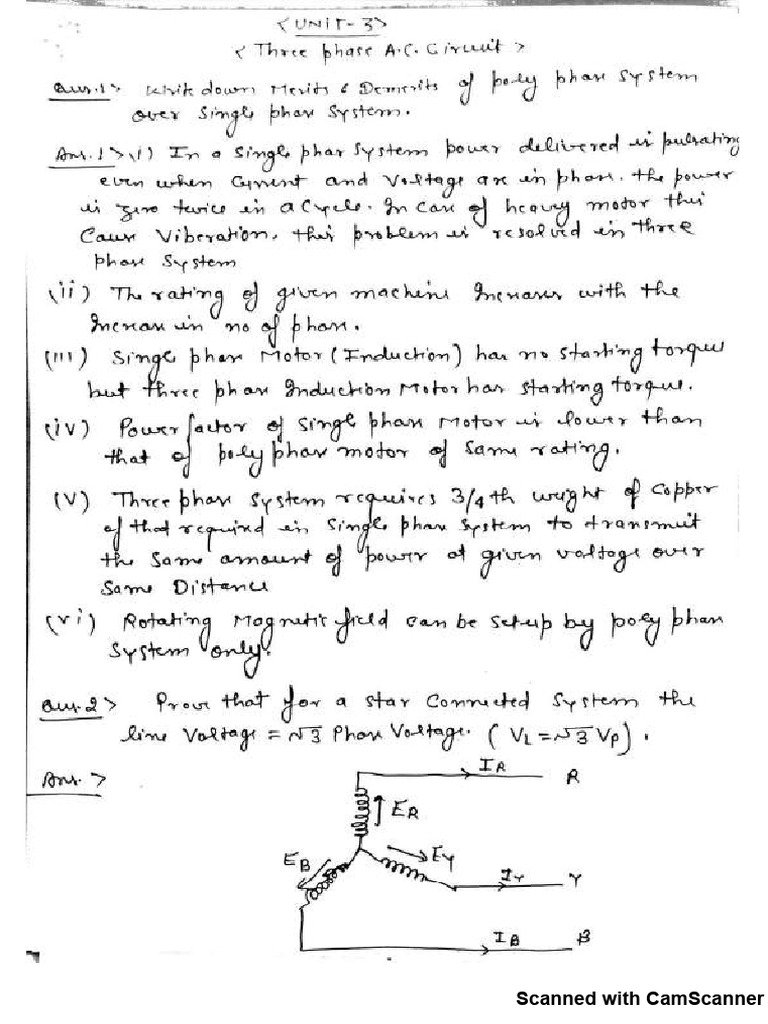 < UNIT-3>
< Three phase A.C. Circuit >
Que.1> Write down Merits & Demerits of poly phase system
over single phase system.
Ans.1> (i) In a single phase system power delivered is pulsating
even when current and voltage are in phase. the power
is zero twice in a cycle. In case of heavy motor this
cause viberation, this problem is resolved in three
phase system
(ii) The rating of given machine increases with the
increase in no of phase.
(iii) Single phase Motor (Induction) has no starting torque
but three phase Induction Motor has starting torque.
(iv) Power factor of single phase Motor is lower than
that of poly phase motor of same rating.
(v) Three phase system requires 3/4th weight of copper
of that required in single phase system to transmit
the same amount of power at given voltage over
same Distance
(vi) Rotating Magnetic field can be setup by poly phase
system only.
Que.2> Prove that for a star connected system the
line voltage = √3 Phase Voltage. (VL = √3 Vp).
Ans.>
IR
R
ER
EB
EY
IY
Y
IB
B
Scanned with CamScanner